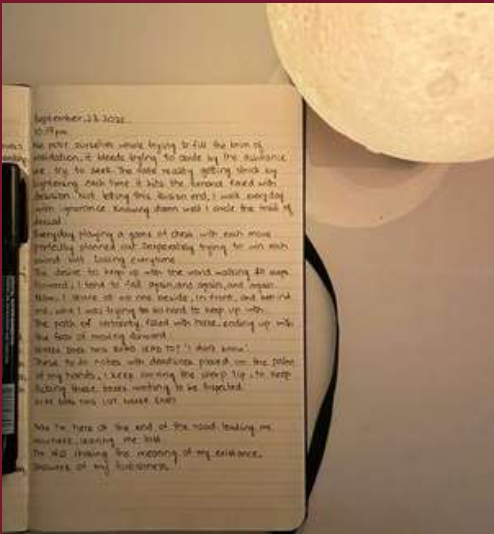 September, 23 2022
10:19 pm
We pour ourselves while trying to fill the brim of
validation, it bleeds trying to abide by the assurance
we try to seek. The naked reality getting struck by
lightening each time it hits the surface filled with
delusion. Not letting this illusion end, I walk everyday
with ignorance. Knowing damn well I circle the trail of
denial.
Everyday playing a game of chess with each move
perfectly planned out. Desperately trying to win each
round but losing everytime.
The desire to keep up with the world walking steps
forward, I tend to fall again, and again, and again.
Now, I stare at no one beside, in front, and behind
me, what I was trying so so hard to keep up with.
The path of certainty, filled with haste, ending up with
the fear of moving forward.
WHERE DOES THIS ROAD LEAD TO? 'I don't know'.
These to do notes with deadlines placed on the palm
of my hands, I keep carving the sharp tip, to keep
ticking those boxes wanting to be
WHY DOES THIS LIST NEVER END?
Now I'm here at the end of the road leading me
nowhere, leaving me lost.
I'm still chasing the meaning of my existence,
unaware of my